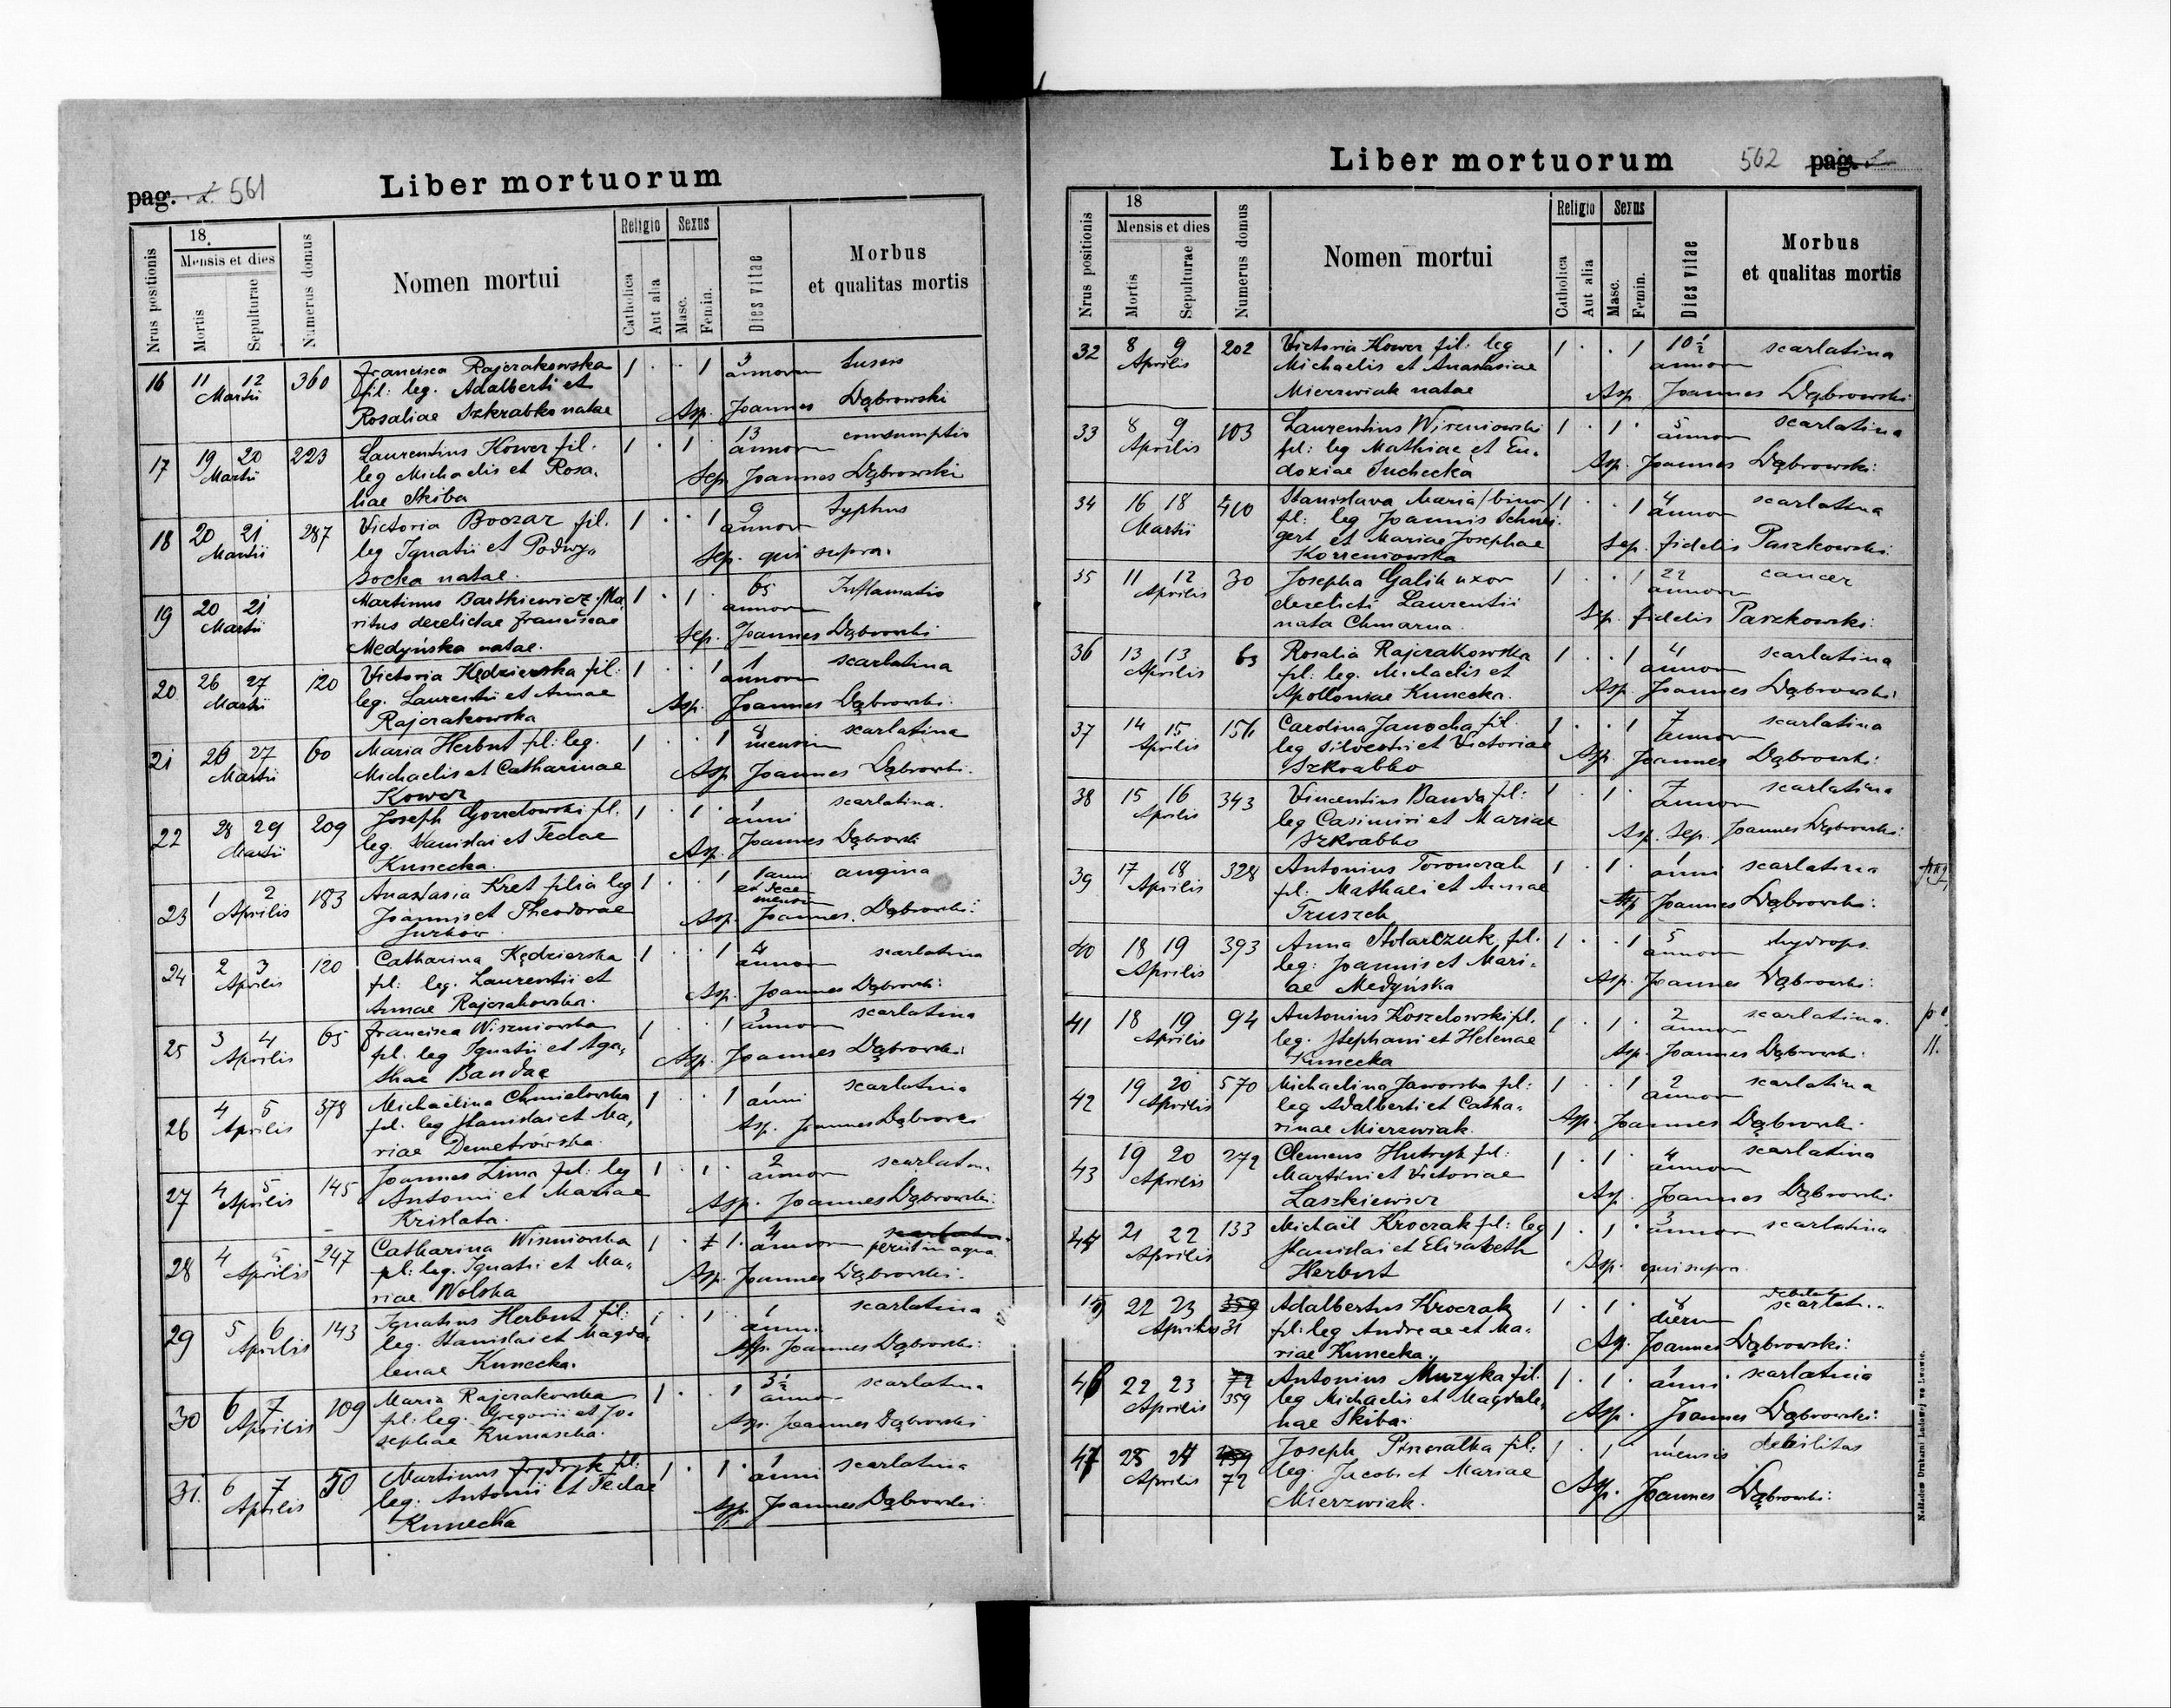 pag. 2. 561
Liber mortuorum
Nrus positionis
18
Mensis et dies
Mortis
Sepulturae
Numerus domus
Nomen mortui
Religio
Catholica
Aut alia
Sexus
Masc.
Femin.
Dies vitae
Morbus
et qualitas mortis
16 11 12 Martii 360 Francisca Rajczakowska 1 . . 1 3 annorum tussis
fil: leg. Adalberti et
Rosaliae Szkrabko natae Asp. Joannes Dąbrowski
17 19 20 Martii 223 Laurentius Kower fil. 1 . 1 . 13 annorum consumptio
leg Michaelis et Rosa-
liae Skiba Sep. Joannes Dąbrowski
18 20 21 Martii 287 Victoria Boczar fil. 1 . . 1 9 annorum Typhus
leg Ignatii et Podwy-
socka natae. Sep. qui supra.
19 20 21 Martii Martinus Bartkiewicz. Ma- 1 . 1 . 65 annorum Inflamatio
ritus derelictae Franciscae
Medyńska natae. Sep. Joannes Dąbrowski
20 26 27 Martii 120 Victoria Kędzierska fil: 1 . . 1 1 annorum scarlatina
leg. Laurentii et Annae
Rajczakowska Asp. Joannes Dąbrowski:
21 26 27 Martii 60 Maria Herbut fil: leg. 1 . . 1 8 mensium scarlatina
Michaelis et Catharinae
Kower Asp. Joannes Dąbrowski.
22 28 29 Martii 209 Joseph Gorzelowski fil. 1 . 1 . 1 anni scarlatina.
leg. Stanislai et Teclae
Kunecka. Asp. Joannes Dąbrowski
23 1 2 Aprilis 183 Anastasia Kret filia leg 1 . . 1 1 anni angina
Joannis et Theodorae
Asp. Joannes. Dąbrowski:
24 2 3 Aprilis 120 Catharina Kędzierska 1 . . 1 4 annorum scarlatina
fil: leg. Laurentii et
Annae Rajczakowska. Asp. Joannes Dąbrowski:
25 3 4 Aprilis 65 Francisca Wiszniowska 1 . . 1 3 annorum scarlatina
fil. leg Ignatii et Aga-
thae Bandae Asp. Joannes Dąbrowski:
26 4 5 Aprilis 378 Michaelina Chmielowska 1 . . 1 1 anni scarlatina
fil. leg Stanislai et Ma-
riae Demetrowska. Asp. Joannes Dąbrows
27 4 5 Aprilis 145 Joannes Zima fil: leg 1 . 1 . 2 annorum scarlatin.
Antonii et Mariae
Krislata. Asp. Joannes Dąbrowski:
28 4 5 Aprilis 247 Catharina Wiszniowska 1 . 1 1. 4 annorum scarlatina
fil: leg. Ignatii et Ma- periit in aqua
riae Wolska Asp. Joannes Dąbrowski.
29 5 6 Aprilis 143 Ignatius Herbut fil: 1 . 1 1 anni scarlatina
leg. Stanislai et Magda-
lenae Kunecka. Asp. Joannes Dąbrowski:
30 6 7 Aprilis 109 Maria Rajczakowska 1 . . 1 3½ annor scarlatina
fil: leg. Gregorii et Jo-
sephae Asp. Joannes Dąbrowski
31. 6 7 Aprilis 50 Martinus Frydryk fil: 1 . 1 . 1 anni scarlatina
leg: Antonii et Teclae
Kunecka Asp. Joannes Dąbrowski:
Liber mortuorum
562 pag.
Nrus positionis
18
Mensis et dies
Mortis
Sepulturae
Numerus domus
Nomen mortui
Religio
Catholica
Aut alia
Sexus
Masc.
Femin.
Dies vitae
Morbus
et qualitas mortis
32 8 9 Aprilis 202 Victoria Kower fil: leg 1 . . 1 10½ annorum scarlatina
Michaelis et Anastasiae
Mierzwiak natae Asp Joannes Dąbrowski
33 8 9 Aprilis 103 Laurentius Wiszniowski 1 . 1 . 5 annorum scarlatina
fil: leg Mathiae et Eu-
doxiae Suchecka Asp. Joannes Dąbrowski:
34 16 18 Martii 410 Stanislava Maria /bino/ 1 . . 1 4 annorum scarlatina
fil: leg Joannis Schwei-
gert et Mariae Josephae
Korzeniowska Sep. fidelis Paszkowski:
35 11 12 Aprilis 30 Josepha Galik uxor 1 . . 1 22 annorum cancer
derelicti Laurentii
nata Chmarna. Sep. fidelis Paszkowski:
36 13 13 Aprilis 63 Rosalia Rajczakowska 1 . . 1 4 annorum scarlatina
fil: leg. Michaelis et
Apolloniae Kunecka. Asp. Joannes Dąbrowski:
37 14 15 Aprilis Carolina Janocha fil. 1 . . 1 7 annorum scarlatina
leg Silvestri et Victoriae
Szkrabko Asp. Joannes Dąbrowski:
38 15 16 Aprilis 343 Vincentius Banda fil: 1 . 1 . 7 annorum scarlatina
leg Casimiri et Mariae
Szkrabko Asp. Sep. Joannes Dąbrowski:
39 17 18 Aprilis 328 Antonius Toronczak 1 . 1 . 1 anni scarlatina
fil: Mathaei et Annae
Truszch Asp Joannes Dąbrowski:
40 18 19 Aprilis 393 Anna Stolarczuk, fil. 1 . . 1 5 annorum hydrops.
leg: Joannis et Mari-
ae Medyńska Asp. Joannes Dąbrowski:
41 18 19 Aprilis 94 Antonius Koszelowski fil. 1 . 1 . 2 annorum scarlatina.
leg. Stephani et Helenae
Kunecka Asp. Joannes Dąbrowski: 11.
42 19 20 Aprilis 570 Michaelina Jaworska fil: 1 . . 1 2 annorum scarlatina
leg Adalberti et Catha-
rinae Mierzwiak. Asp Joannes Dąbrowski.
43 19 20 Aprilis 272 Clemens Hutryk fil: 1 . 1 . 4 annorum scarlatina
Martini et Victoriae
Laszkiewicz Asp. Joannes Dąbrowski
44 21 22 Aprilis 133 Michaël Kroczak fil: leg 1 . 1 . 3 annorum scarlatina
Stanislai et Elisabeth
Herbut Asp. qui supra.
45 22 23 Aprilis 359 31 Adalbertus Kroczak 1 . 1 . 8 dierum scarlat..
fil: leg Andreae et Ma-
riae Kunecka. Asp. Joannes Dąbrowski:
46 22 23 Aprilis 72 359 Antonius Muzyka fil. 1 . 1 . 1 anni scarlatina
leg Michaelis et Magdale-
nae Skiba. Asp. Joannes Dąbrowski:
47 23 24 Aprilis 72 Joseph fil: 1 . 1 1 mensis debilitas
leg. Jacobi et Mariae
Mierzwiak. Asp. Joannes Dąbrowski:
Nakładem Drukarni Ludowej we Lwowie.